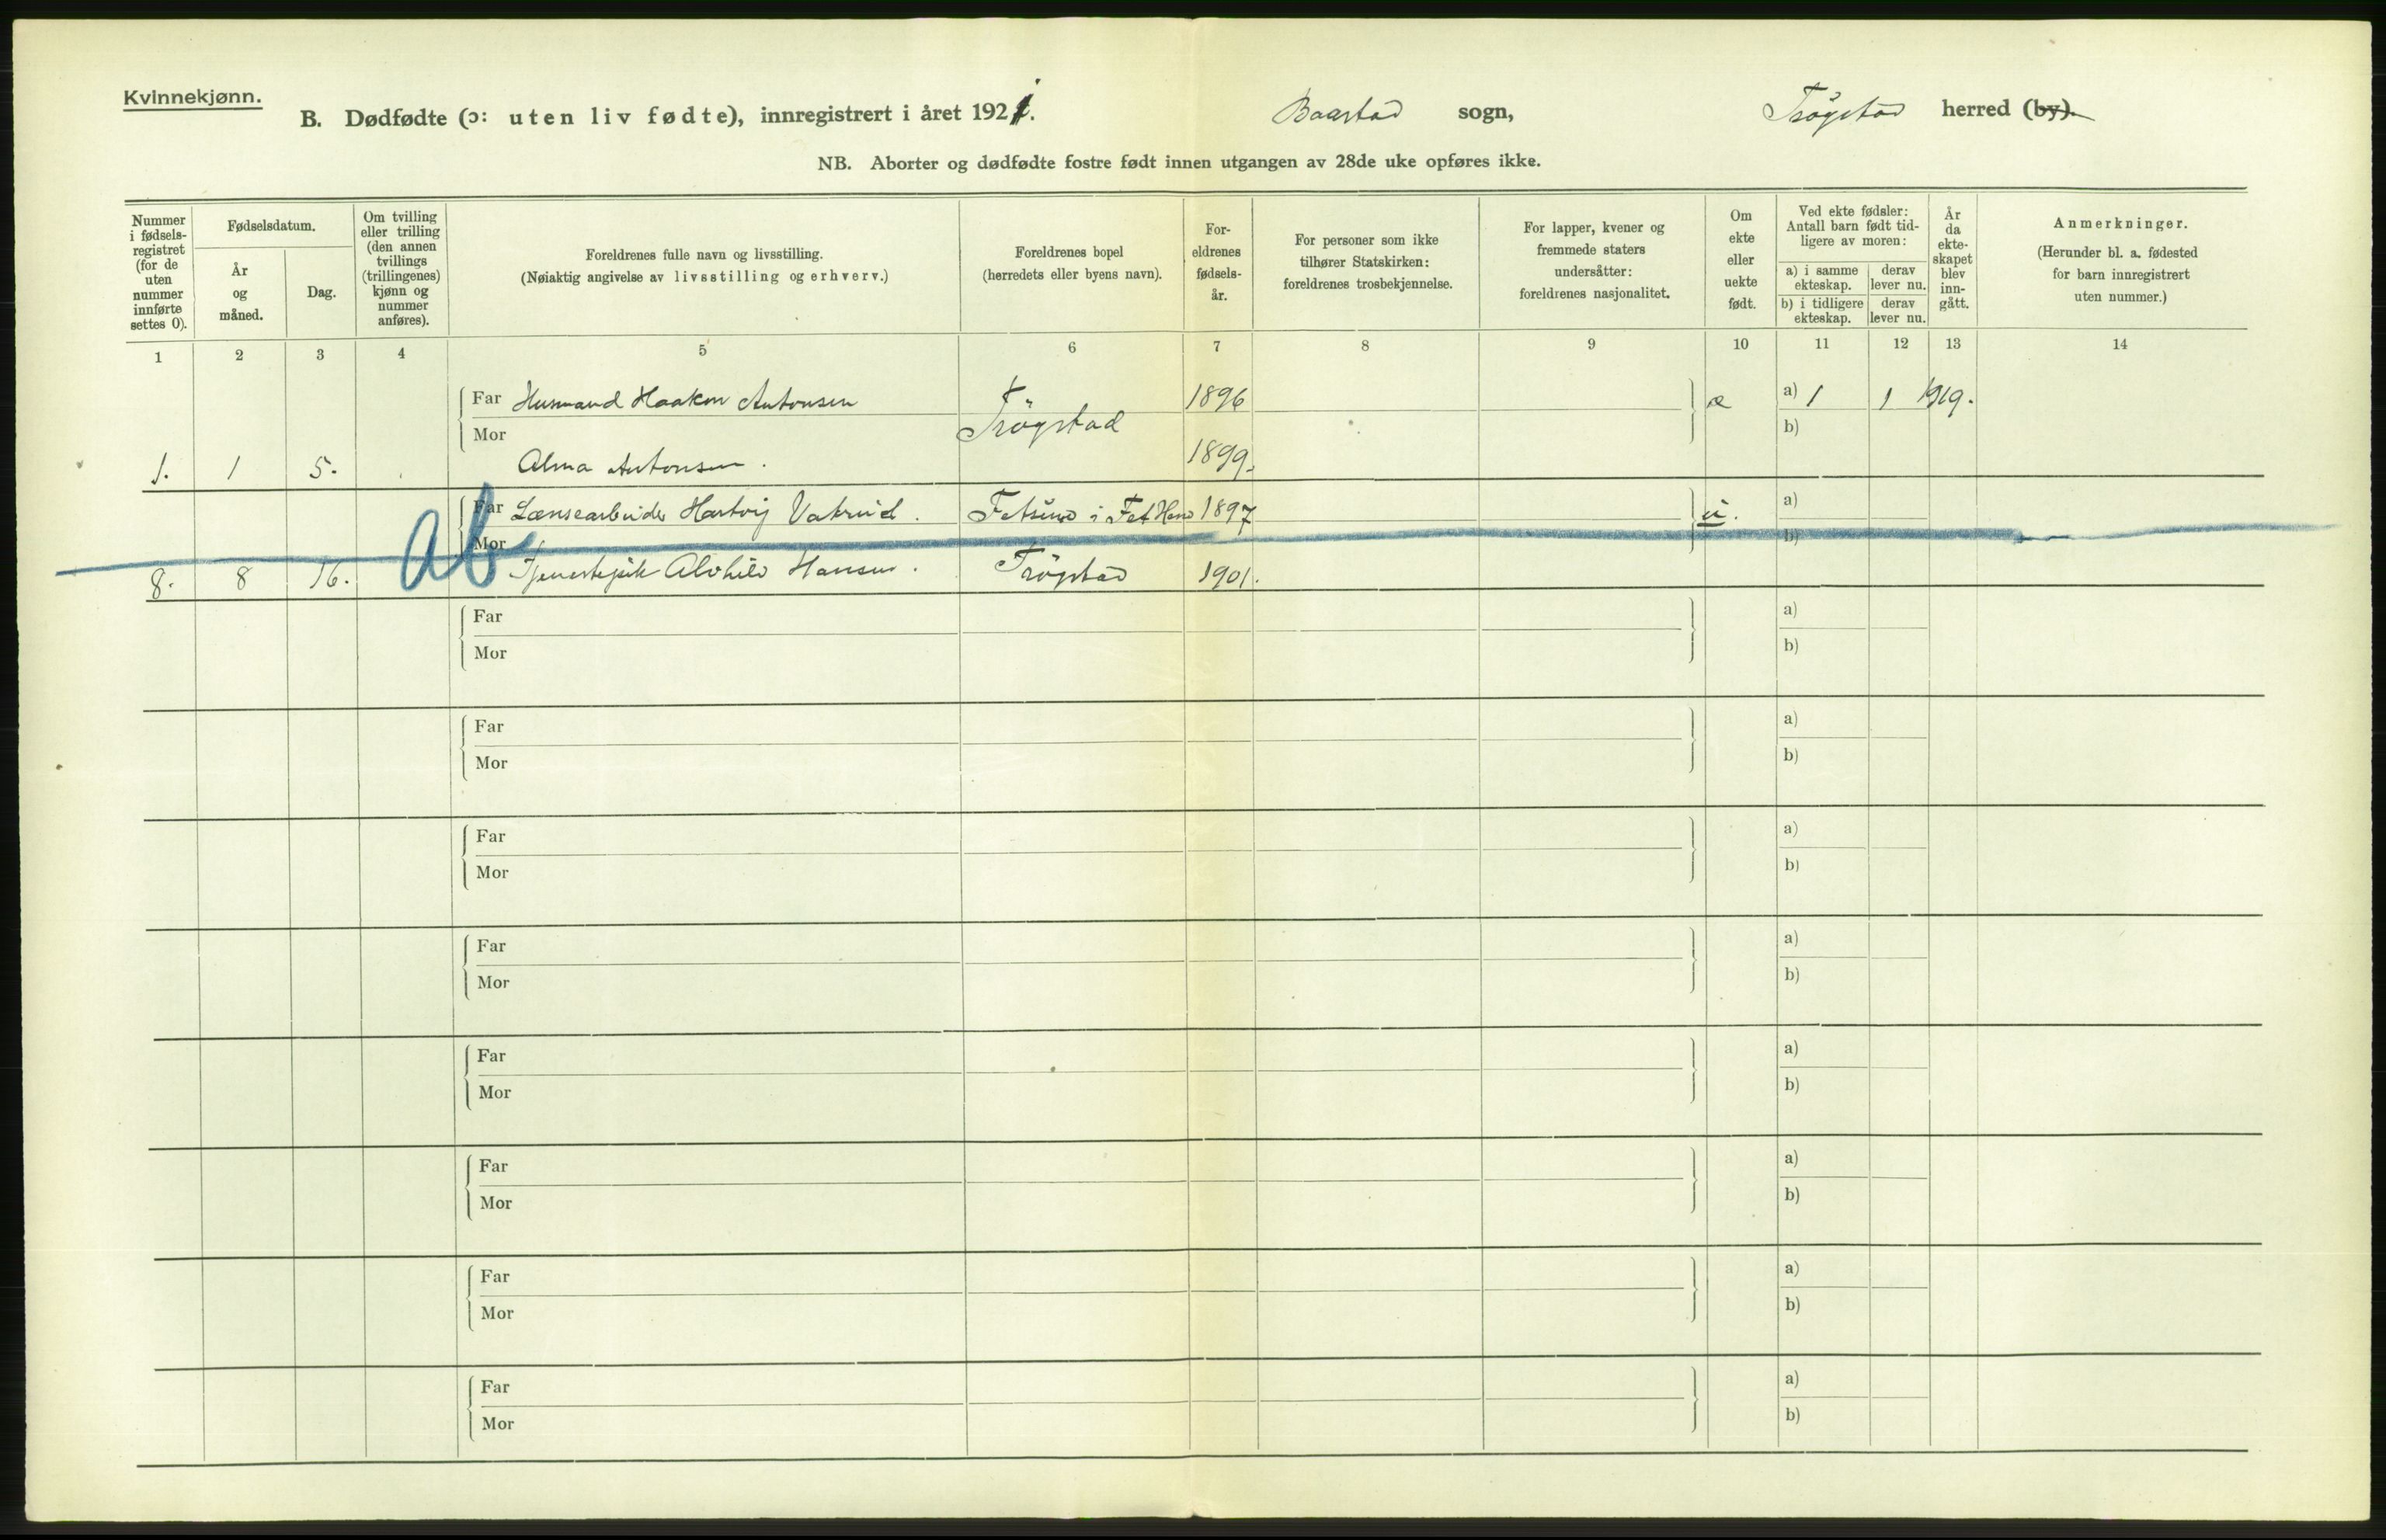 Kvinnekjønn.
B. Dødfødte (ɔ: uten liv fødte), innregistrert i året 1921. Baastad sogn, Trøgstad herred (by).
NB. Aborter og dødfødte fostre født innen utgangen av 28de uke opføres ikke.
Nummer i fødsels-registret (for de uten nummer innførte settes 0).
Fødselsdatum.
År og måned.
Dag.
Om tvilling eller trilling (den annen tvillings (trillingenes) kjønn og nummer anføres).
Foreldrenes fulle navn og livsstilling.
(Nøiaktig angivelse av livsstilling og erhverv.)
Foreldrenes bopel
(herredets eller byens navn).
For-eldrenes fødsels-år.
For personer som ikke tilhører Statskirken: foreldrenes trosbekjennelse.
For lapper, kvener og fremmede staters undersåtter: foreldrenes nasjonalitet.
Om ekte eller uekte født.
Ved ekte fødsler: Antall barn født tid-ligere av moren:
a) i samme ekteskap. derav lever nu.
b) i tidligere ekteskap. derav lever nu.
År da ekte-skapet blev inn-gått.
Anmerkninger.
(Herunder bl. a. fødested for barn innregistrert uten nummer.)
1 2 3 4 5 6 7 8 9 10 11 12 13 14
Far Husmand Haakon Antonsen Trögstad 1896 æ a) 1 1 1919.
Mor b)
1. 1 5. Alma Antonsen. 1899.
Far Lænsearbeider Hartvig Vatrud. Fetsund i Fet Herred 1897 ú. a)
Mor b)
8. 8 16. ab Tjenestepik Alvhild Hansen. Trögstad 1901.
Far a)
Mor b)
Far a)
Mor b)
Far a)
Mor b)
Far a)
Mor b)
Far a)
Mor b)
Far a)
Mor b)
Far a)
Mor b)
Far a)
Mor b)